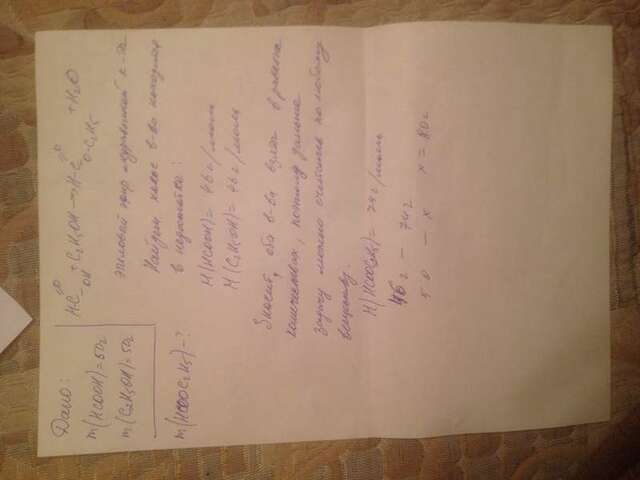 Дано:
m(HCOOH)=50г
m(C₂H₅OH)=50г
m(HCOOC₂H₅)-?
H-C=O-OH + C₂H₅OH → H-C=O-O-C₂H₅ + H₂O
этиловый эфир муравьиной к-ты
Найдем какое в-во находится
в недостатке:
M(HCOOH)= 46 г/моль
M(C₂H₅OH)= 46 г/моль
Значит, оба в-ва взяты в равных
количествах, поэтому дальше
задачу можно считать по любому
веществу.
M(HCOOC₂H₅)= 74 г/моль
46 г — 74 г
50 — x x = 80г